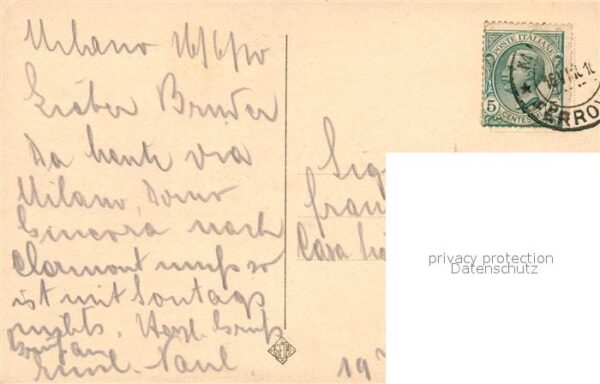 Milano 16/6/10
Lieber Bruder
Da heute via
Milano, Domo
nach
Clarmont muss so
ist mit Sontags
nichts. Herzl. Gruß
Emil.
POSTE ITALIANE
5
CENTES
FERROV
Sig
fran
Casa
privacy protection
Datenschutz
19